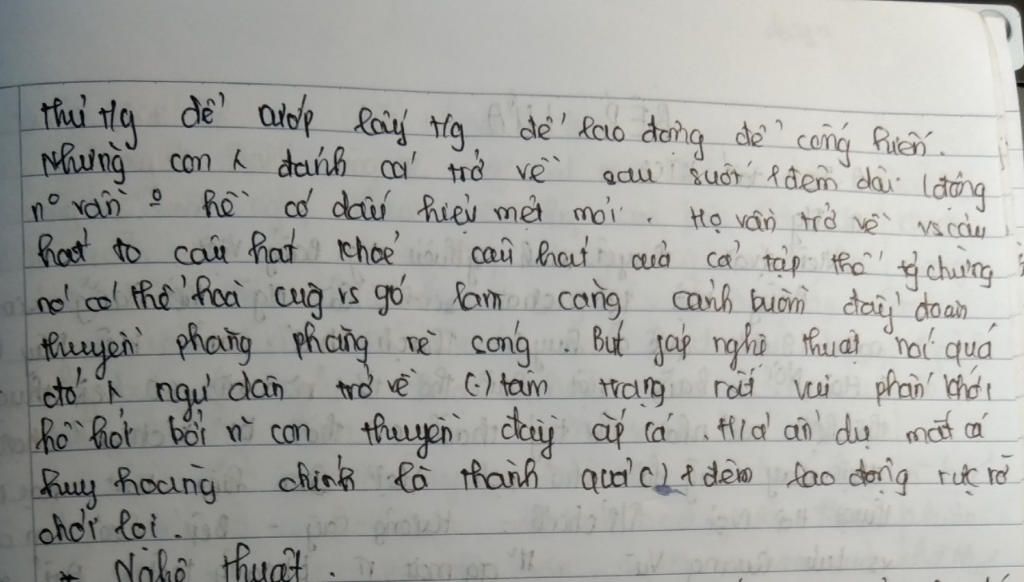 thứ t/g để cướp lấy t/g để lao động để cống hiến.
Những con λ đánh cá trở về sau suốt 1 đêm dài lđộng
nº vẫn º hề có dấu hiệu mệt mỏi. Họ vẫn trở về vs câu
hát to câu hát khoẻ câu hát của cả tập thể tg chừng
nó có thể hoà cùg vs gó làm căng cánh buồm đẩy đoàn
thuyền phăng phăng rẽ sóng. Bút pháp nghệ thuật nói quá
đó λ ngư dân trở về (-) tâm trạng rất vui phấn khởi
hồ hởi bởi n~ con thuyền đầy ắp cá. H/a ẩn dụ mắt cá
huy hoàng chính là thành quả (-) 1 đêm lao động rực rỡ
chói lọi.
* Nghệ thuật.